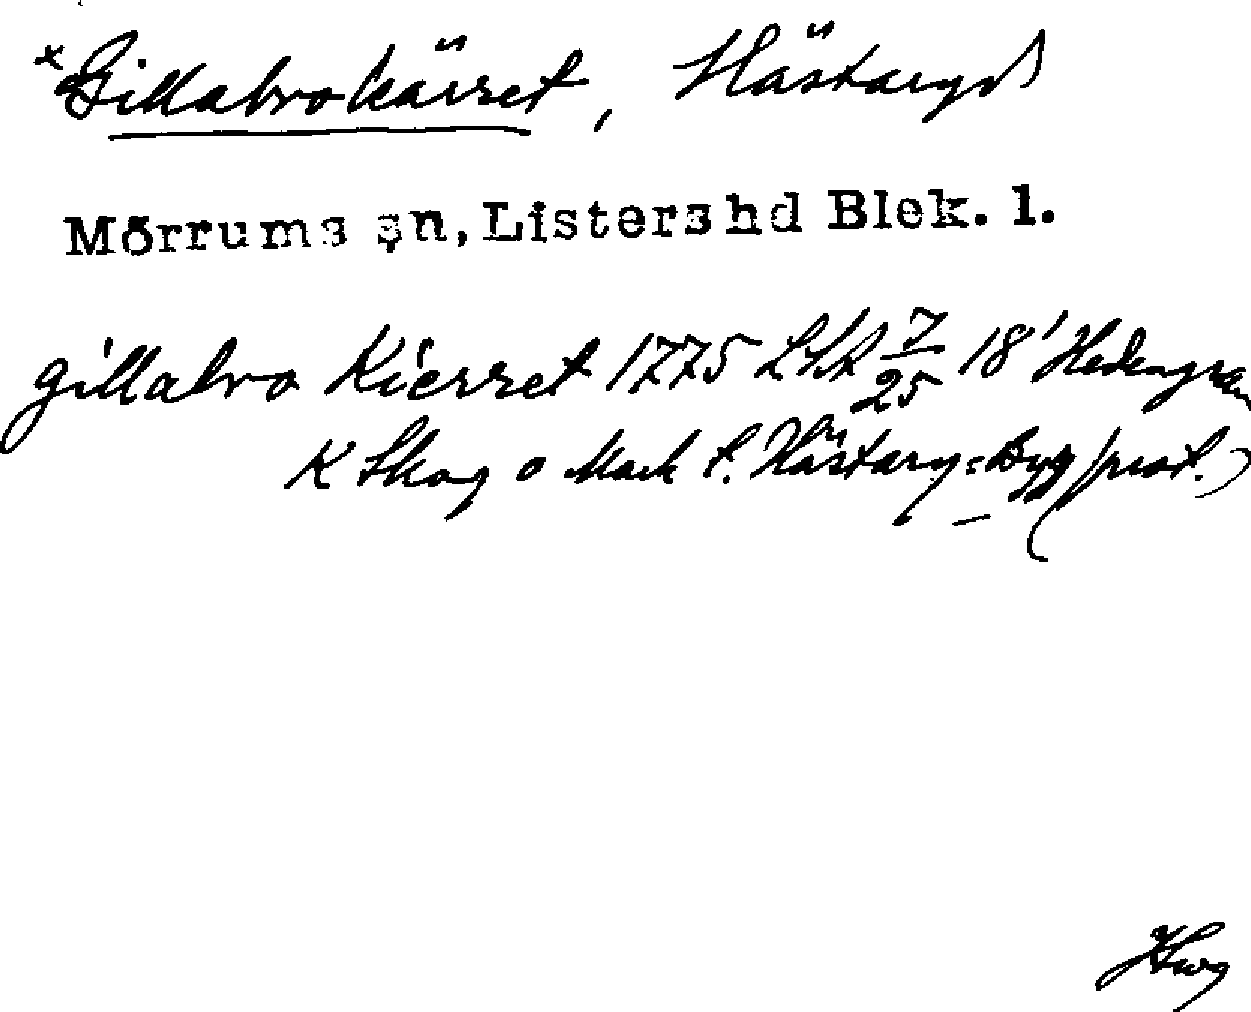 *Gillabrokärret, Hästaryd
Mörrums sn, Listershd Blek. l.
gillabro Kierret 1775 LSA 7/25 18' Hedengran
K Skog o Mark t. Hästary=Byg prot.)